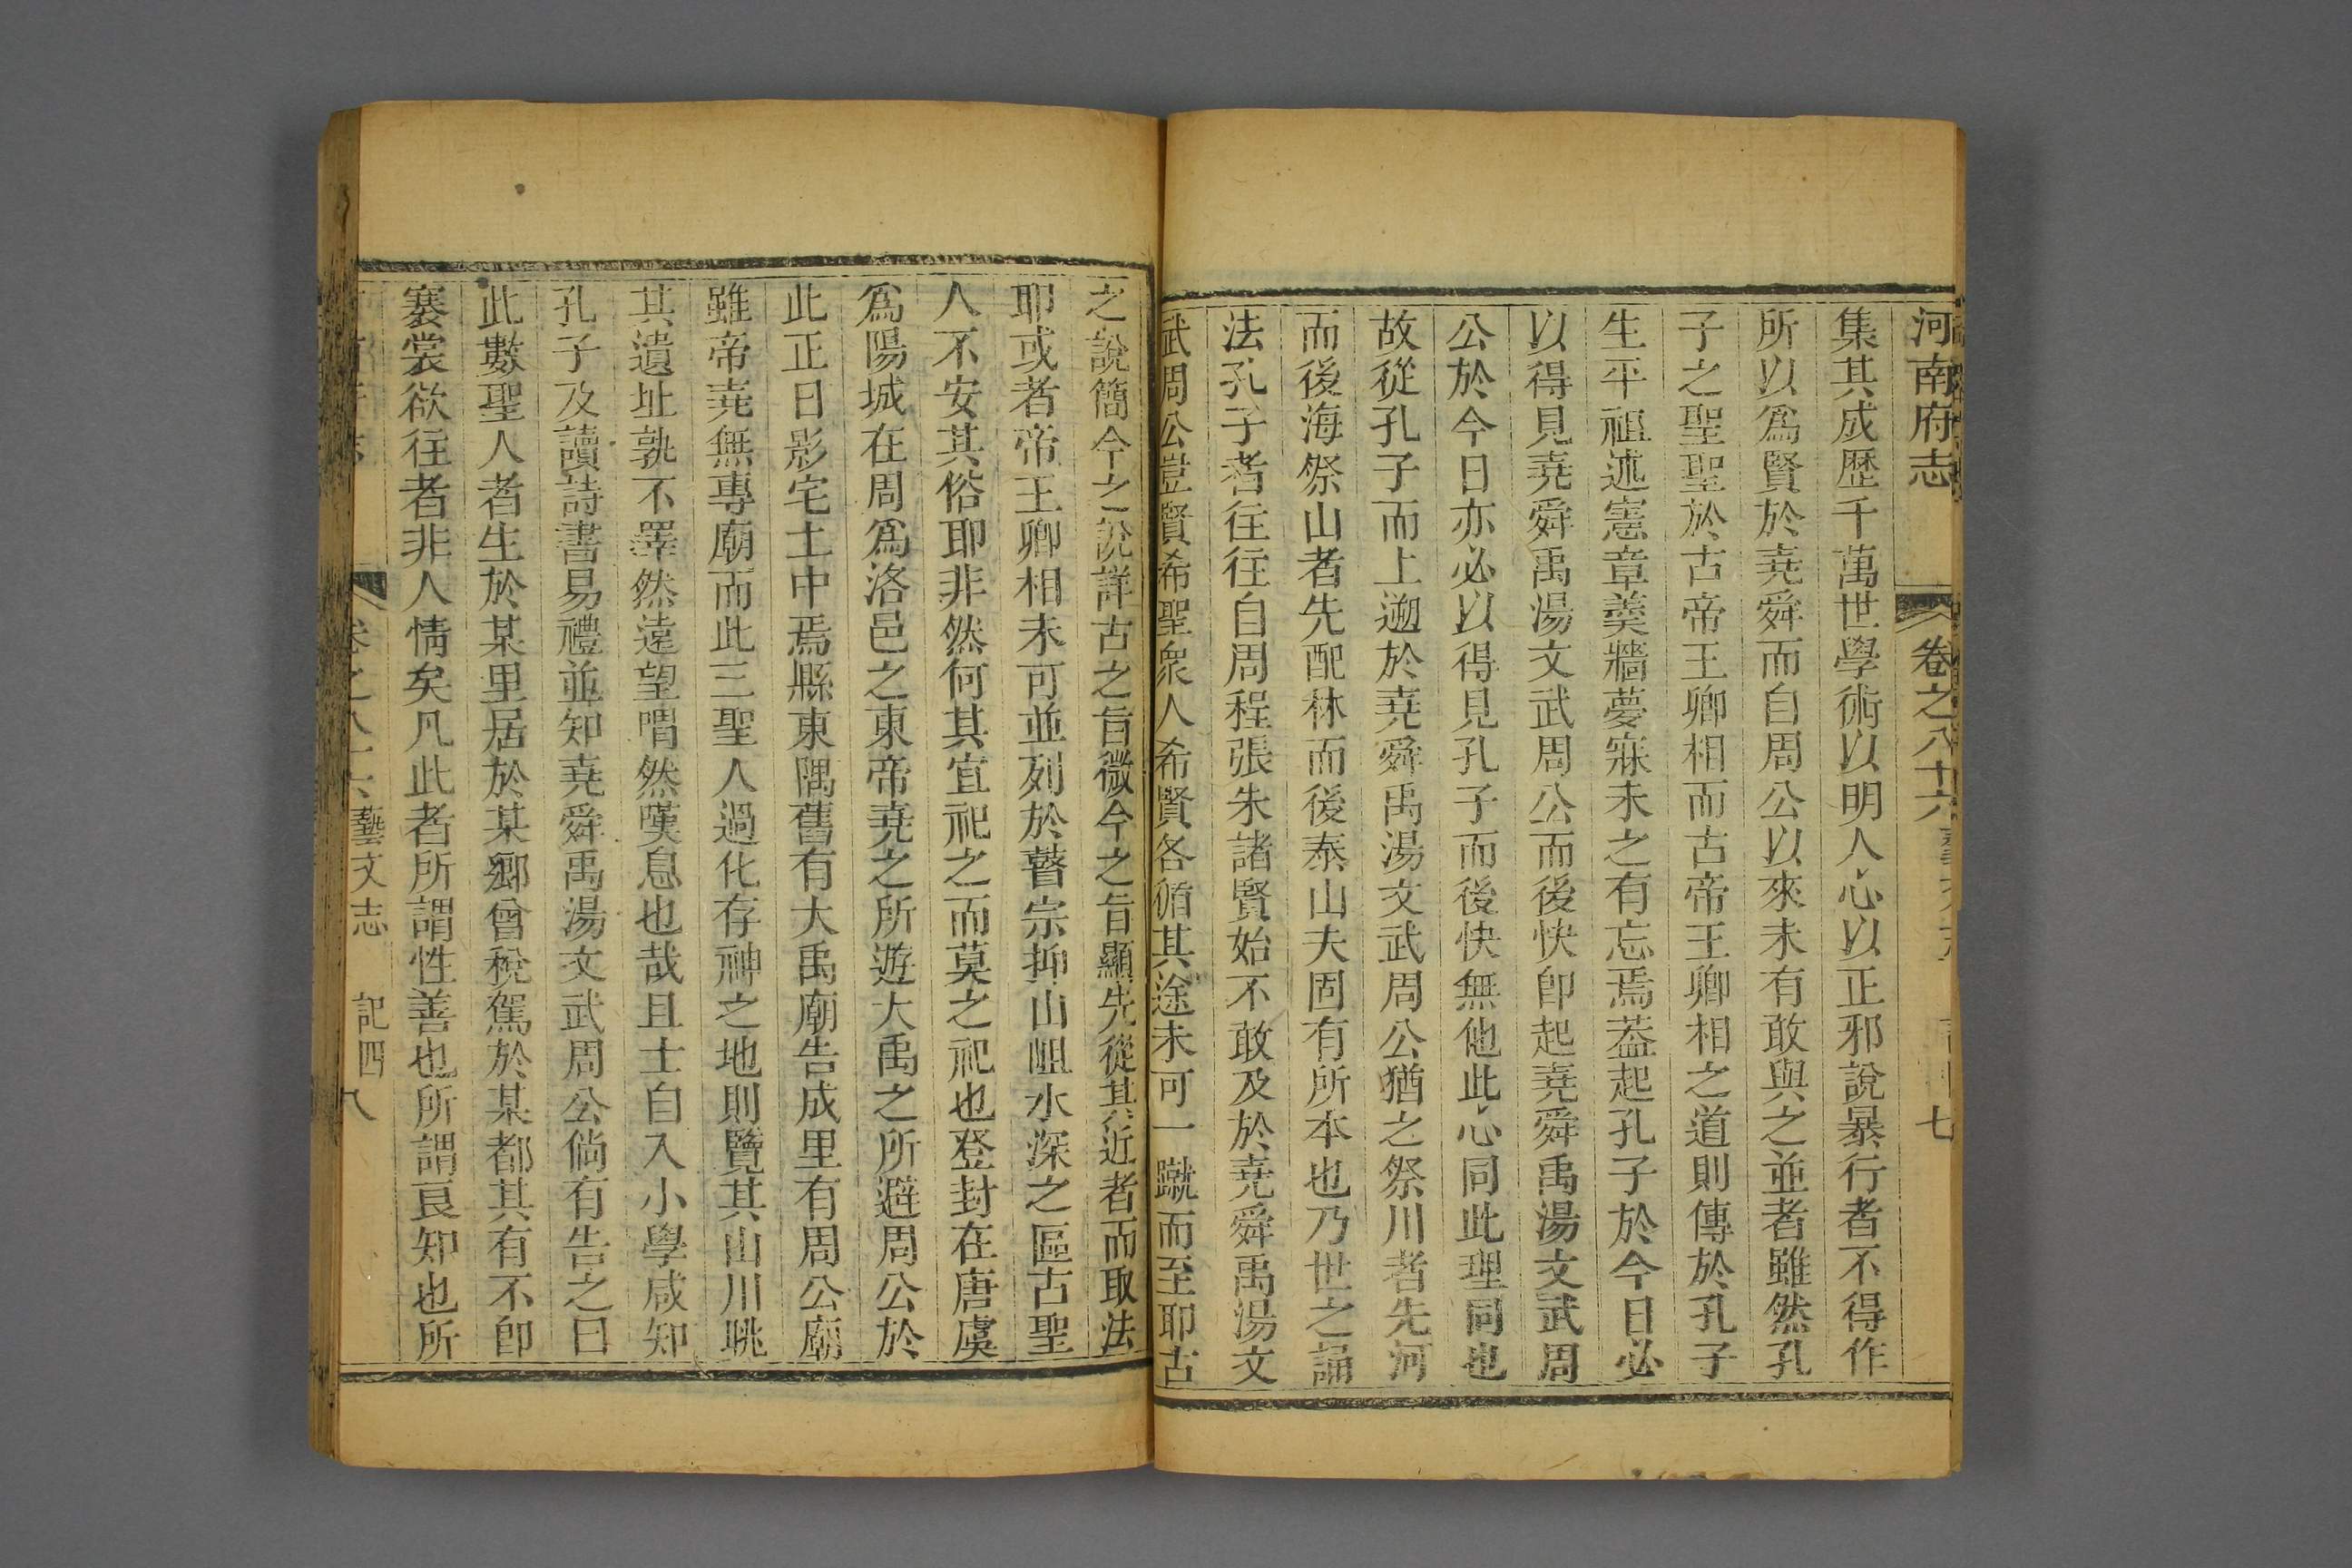 河南府志 卷之八十六 七
集其成歷千萬世學術以明人心以正邪說暴行者不得作
所以爲賢於堯舜而自周公以來未有敢與之並者雖然孔
子之聖聖於古帝王卿相而古帝王卿相之道則傳於孔子
生平祖述憲章羹牆夢寐未之有忘焉葢起孔子於今日必
以得見堯舜禹湯文武周公而後快卽起堯舜禹湯文武周
公於今日亦必以得見孔子而後快無他此心同此理同也
故從孔子而上遡於堯舜禹湯文武周公猶之祭川者先河
而後海祭山者先配林而後泰山夫固有所本也乃世之誦
法孔子者往往自周程張朱諸賢始不敢及於堯舜禹湯文
武周公豈賢希聖衆人希賢各循其途未可一蹴而至耶古
之說簡今之說詳古之旨微今之旨顯先從其近者而取法
耶或者帝王卿相未可並列於瞽宗抑山岨水深之區古聖
人不安其俗耶非然何其宜祀之而莫之祀也登封在唐虞
爲陽城在周爲洛邑之東帝堯之所遊大禹之所避周公於
此正日影宅土中焉縣東隅舊有大禹廟告成里有周公廟
雖帝堯無專廟而此三聖人過化存神之地則覽其山川眺
其遺址孰不睪然遠望喟然嘆息也哉且士自入小學咸知
孔子及讀詩書易禮並知堯舜禹湯文武周公倘有告之曰
此數聖人者生於某里居於某鄉曾稅駕於某都其有不卽
褰裳欲往者非人情矣凡此者所謂性善也所謂良知也所
卷之八十六 藝文志 記四 八